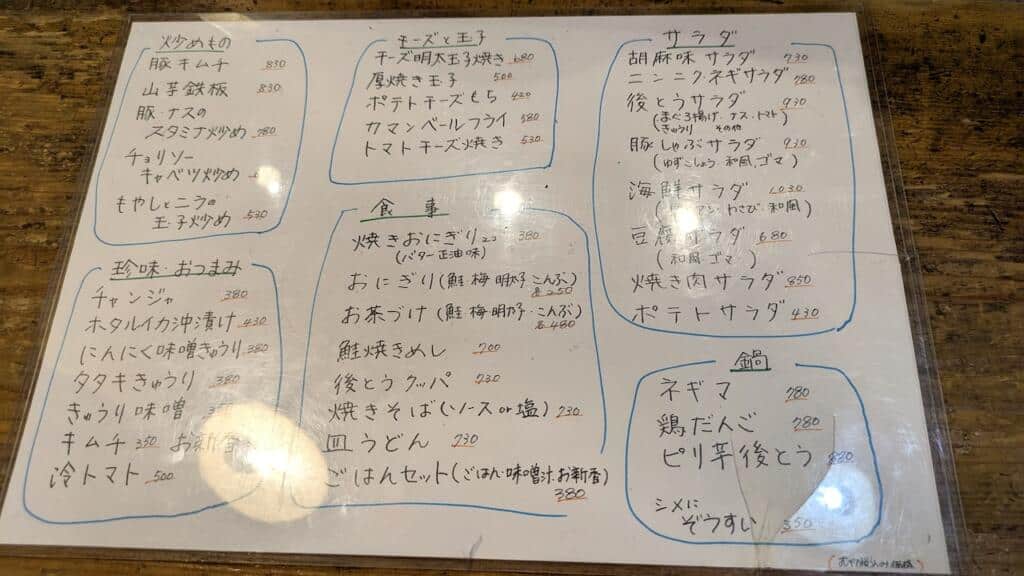 炒めもの
豚キムチ 830
山芋鉄板 830
豚・ナスの
スタミナ炒め 780
チョリソー
キャベツ炒め
もやしとニラの
玉子炒め 530
珍味・おつまみ
チャンジャ 380
ホタルイカ沖漬け 430
にんにく味噌きゅうり 380
タタキきゅうり 380
きゅうり味噌
キムチ 350 お新香
冷トマト 500
チーズと玉子
チーズ明太玉子焼き 680
厚焼き玉子 500
ポテトチーズもち 420
カマンベールフライ 580
トマトチーズ焼き 530
食事
焼きおにぎり2コ 380
(バター正油味)
おにぎり(鮭・梅・明太子・こんぶ)
各250
お茶づけ(鮭・梅・明太子・こんぶ)
各480
鮭焼きめし 700
後とうクッパ 730
焼きそば(ソースor塩) 730
皿うどん 730
ごはんセット(ごはん・味噌汁・お新香)
380
サラダ
胡麻味サラダ 730
ニンニクネギサラダ 780
後とうサラダ 930
(まぐろ揚げ・ナス・トマト
きゅうり その他)
豚しゃぶサラダ 930
(ゆずこしょう・和風・ゴマ)
海鮮サラダ 1030
わさび・和風)
豆腐サラダ 680
(和風・ゴマ)
焼き肉サラダ 850
ポテトサラダ 430
鍋
ネギマ 780
鶏だんご 780
ピリ辛後とう 830
シメに
ぞうすい 350